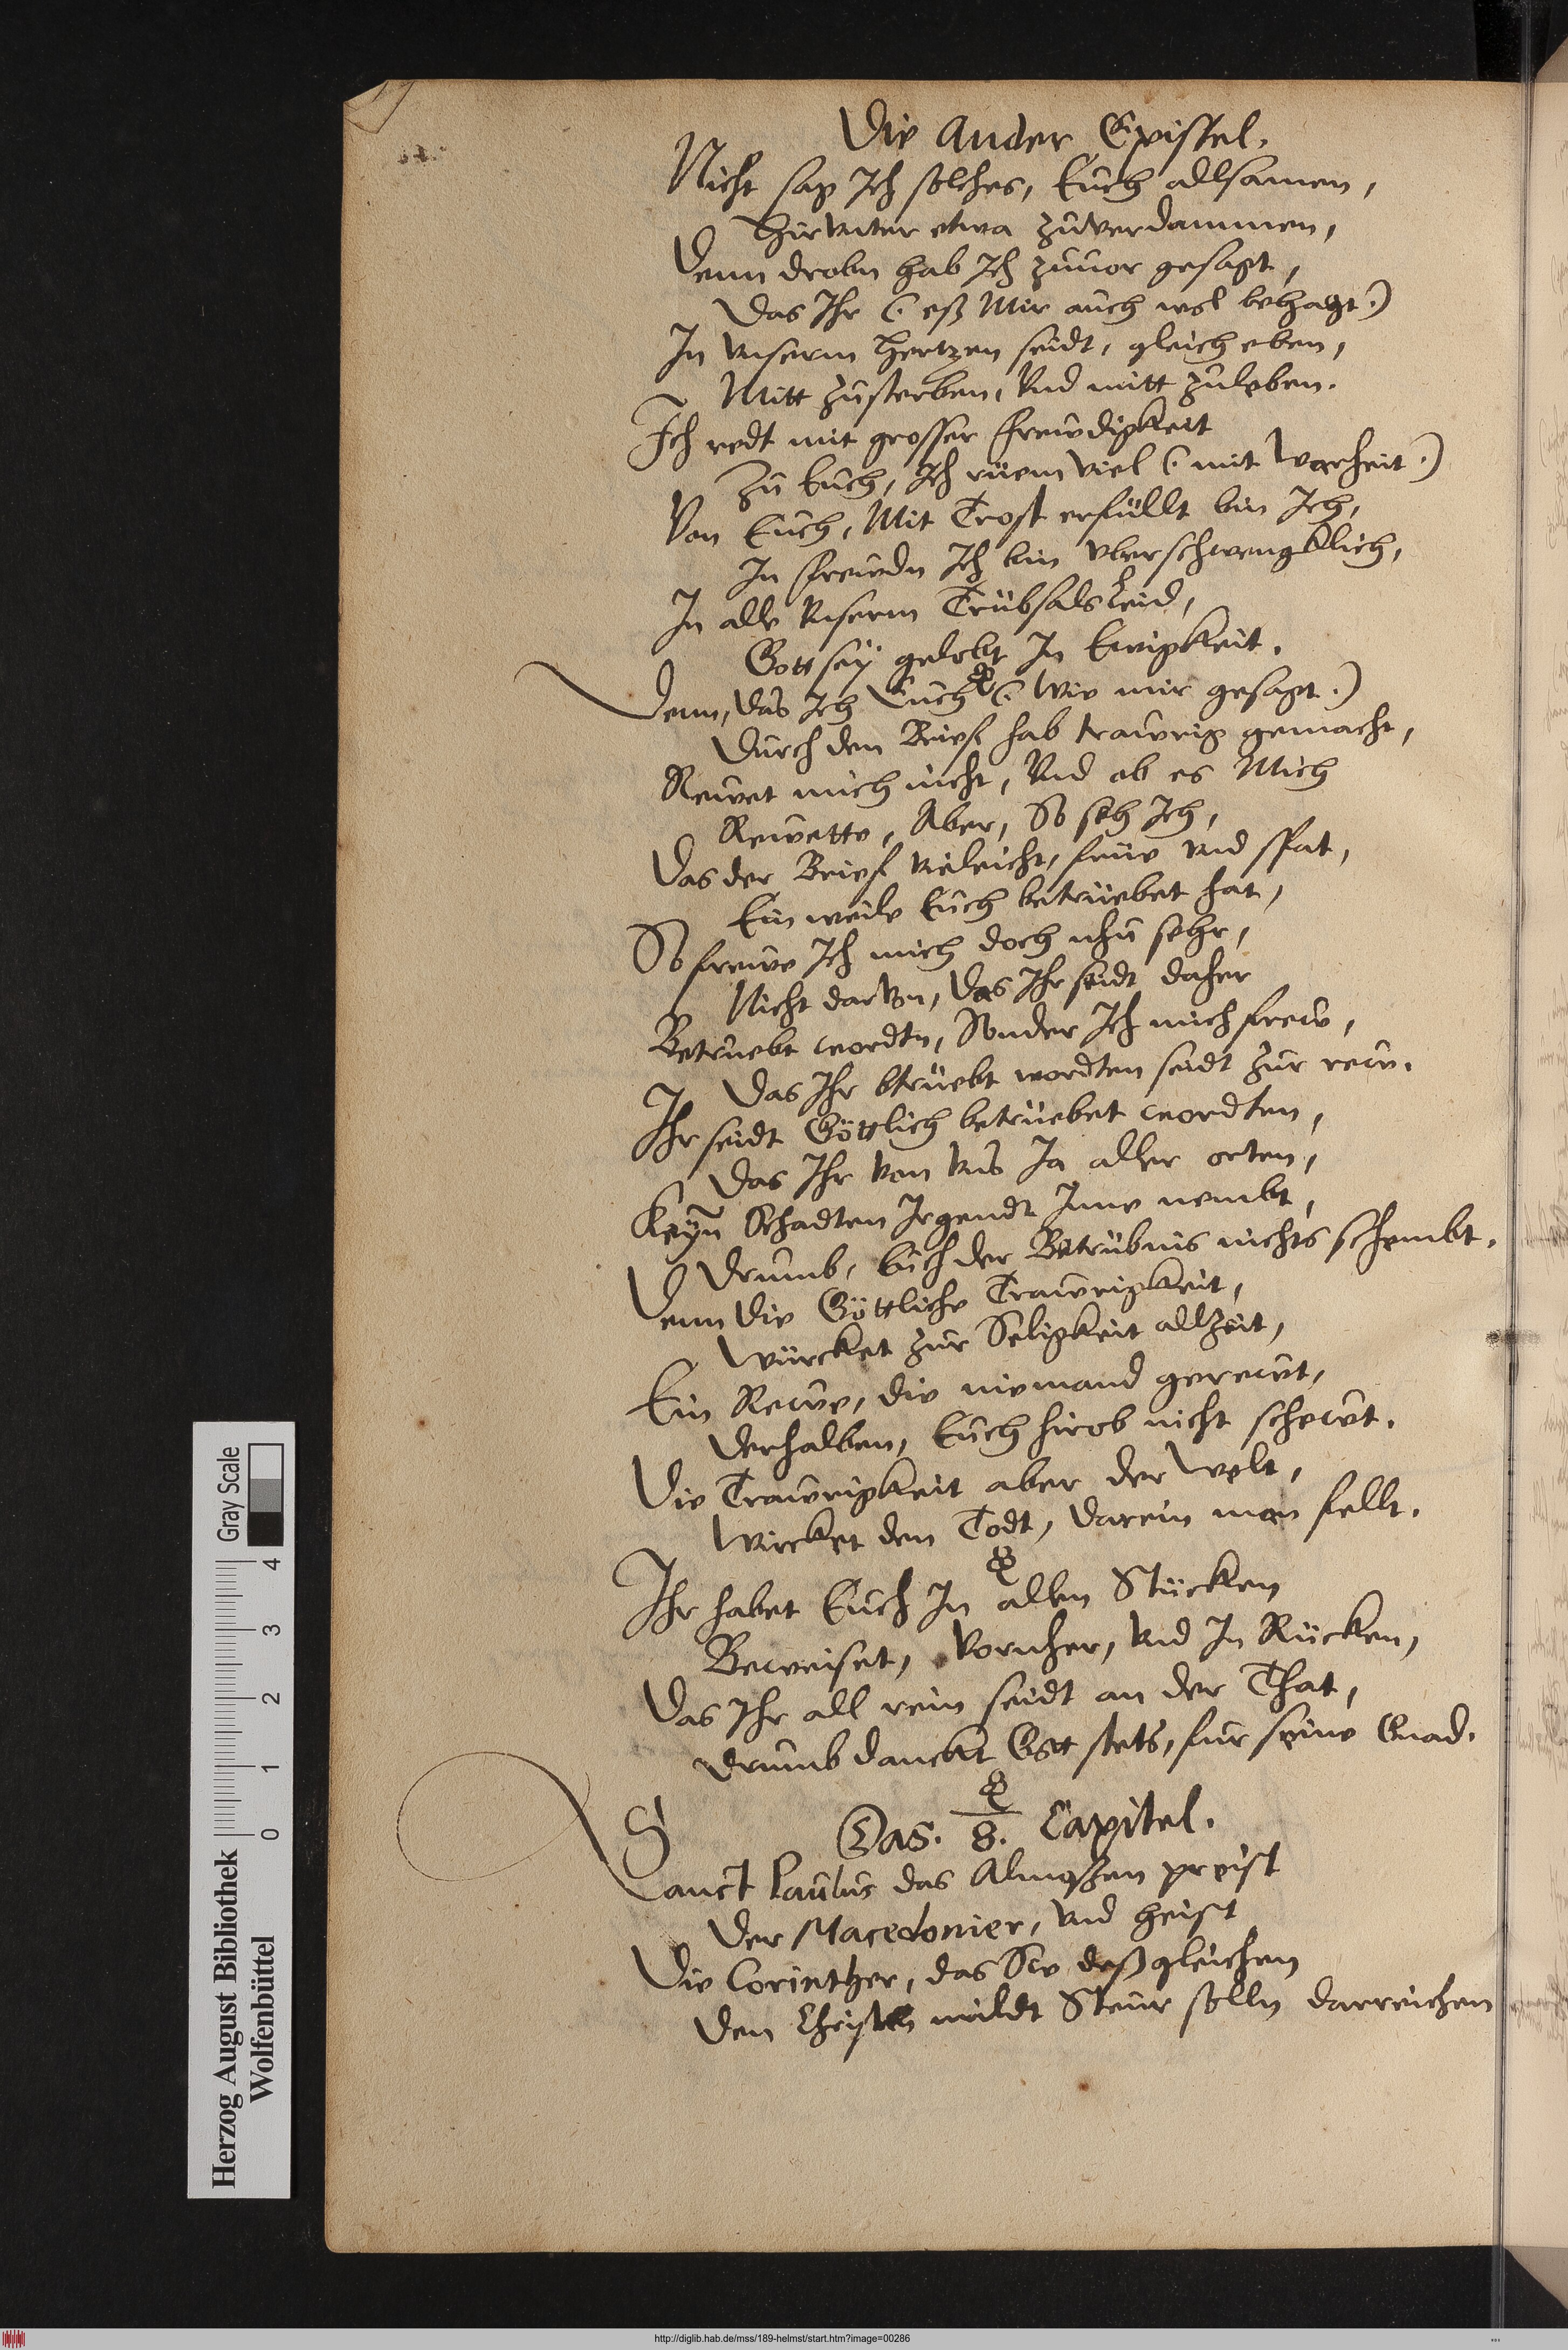 Die Ander Epistel.
Nicht sag Ich solches, Euch allsamen,
Hirunter etwa zuverdammen,
Denn drobn hab Ich zuuor gesagt,
Das Ihr (. eß Mir auch wol behagt .)
In Vnserm Hertzen seidt, gleich eben,
Mitt zusterben, Vnd mitt zuleben.
Ich redt mit grosser frewdigkeit
Zu Euch, Ich rüem viel (. mit Warheit .)
Von Euch, Mit Trost erfüllt bin Ich,
In frewdn Ich bin vberschwengklich,
In alle Vnserm Trübsals Leid,
Gott seÿ gelobt In Ewigkeit.
Denn, Das Ich Euch (. Wie mir gesagt .)
Durch den Brief hab trawrig gemacht,
Rewet mich nicht, Vnd ob es Mich
Rewette, Aber, So seh Ich,
Das der Brief vieleicht, früe vnd spat,
Ein weile Euch betrüebet hat,
So frewe Ich mich doch nhu sehr,
Nicht darVon, Das Ihr seidt daher
Betruebt wordtn, Sonder Ich mich frew,
Das Ihr btrüebt wordten seidt zur rew.
Ihr seidt Göttlich betrüebet wordten,
Das Ihr von vns Ja aller orten,
Keyn Schadten Irgendt Inne nembt,
Drumb, Euch der Betrübnis nichts schembt.
Denn die Göttliche Trawrigkeit,
Würcket zur Seligkeit allzeit,
Ein Rewe, die niemand gerewt,
Derhalben, Euch hirob nicht schewt.
Die Trawrigkeit aber der Welt,
Wircket den Todt, Darein man fellt.
Ihr habet Euch In allen Stücken
Beweiset, Vornher, Vnd In Rücken,
Das Ihr all rein seidt an der That,
Drumb danckt Gott stets, fur seine Gnad.
Das. 8. Capitel.
Sanct Paulus das Almoßen preist
Der Macedonier, Vnd heist
Die Corinther, das Sie deßgleichen
Den Christen mildt Steur solln darreichen
Herzog August Bibliothek
Wolfenbüttel
0 1 2 3 4
Gray Scale
http://diglib.hab.de/mss/189-helmst/start.htm?image=00286